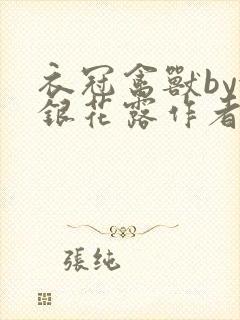 衣冠禽獸by
銀花露作者
張純